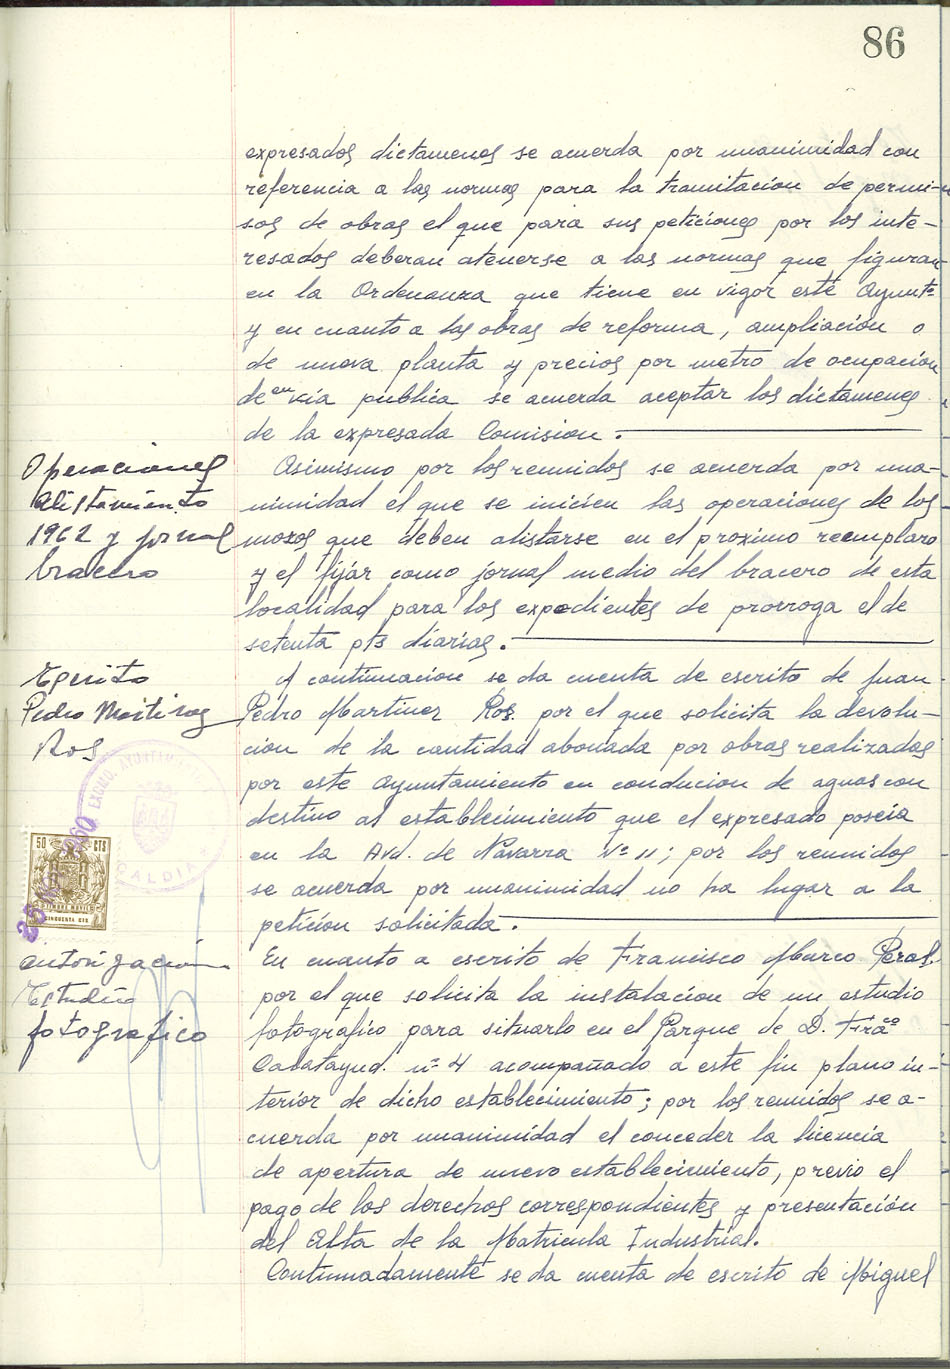 86
expresados dictamenes se acuerda por unanimidad con
referencia a las normas para la tramitación de permi-
sos de obras el que para sus peticiones por los inte-
resados deberan atenerse a las normas que figuran
en la Ordenanza que tiene en vigor este Ayuntº
y en cuanto a las obras de reforma, ampliación o
de nueva planta y precios por metro de ocupación
de en via publica se acuerda aceptar los dictamenes
de la expresada Comision.
Operaciones
Alistamiento
1962 y jornal
bracero
Asimismo por los reunidos se acuerda por una-
nimidad el que se inicien las operaciones de los
mozos que deben alistarse en el proximo reemplazo
y el fijar como jornal medio del bracero de esta
localidad para los expedientes de prorroga el de
setenta pts diarias.
Escrito
Pedro Martinez
Ros
A continuacion se da cuenta de escrito de Juan
Pedro Martinez Ros. por el que solicita la devolu-
cion de la cantidad abonada por obras realizadas
por este Ayuntamiento en conducion de aguas con
destino al establecimiento que el expresado poseia
en la Avd. de Navarra Nº 11; por los reunidos
se acuerda por unanimidad no ha lugar a la
petición solicitada.
EXCMO. AYUNTAMIENTO
ALCALDIA
50 CTS
TIMBRE MOVIL
CINCUENTA CTS
autorización
Estudio
fotografico
En cuanto a escrito de Francisco Marco Peral.
por el que solicita la instalacion de un estudio
fotografico para situarlo en el Parque de D. Francº
Calatayud. nº 4 acompañado a este fin plano in-
terior de dicho establecimiento; por los reunidos se a-
cuerda por unanimidad el conceder la licencia
de apertura de nuevo establecimiento, previo el
pago de los derechos correspondientes y presentación
del Alta de la Matricula Industrial.
Continuadamente se da cuenta de escrito de Miguel